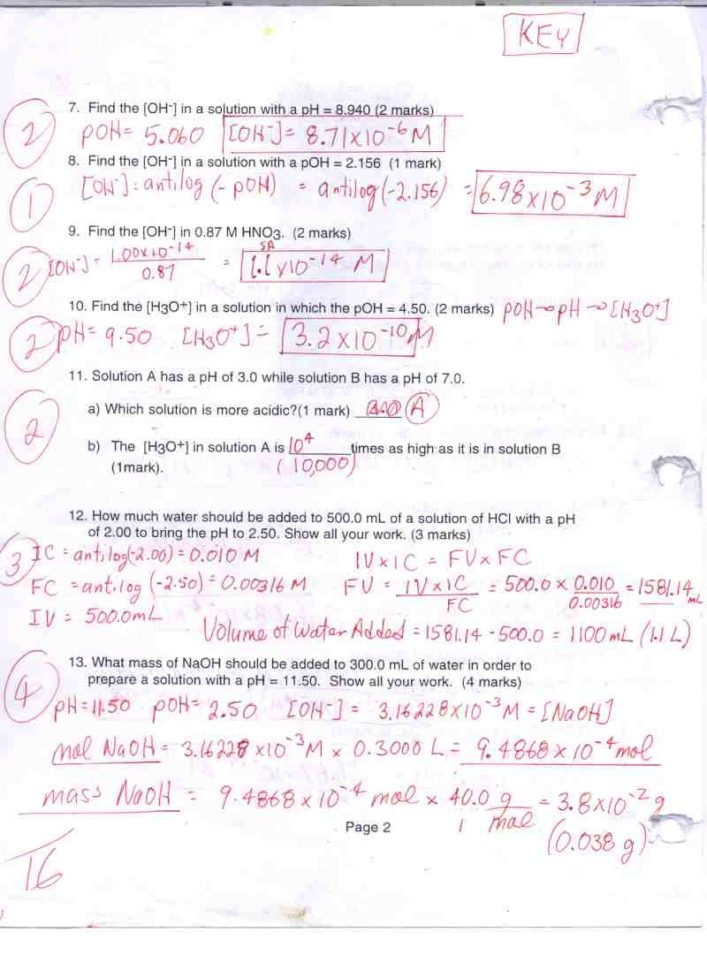 KEY
7. Find the [OH⁻] in a solution with a pH = 8.940 (2 marks)
2 pOH = 5.060 [OH⁻] = 8.71 x 10⁻⁶ M
8. Find the [OH⁻] in a solution with a pOH = 2.156 (1 mark)
1 [OH⁻] = antilog (- pOH) = antilog (-2.156) = 6.98 x 10⁻³ M
9. Find the [OH⁻] in 0.87 M HNO3. (2 marks)
SA
2 [OH⁻] = 1.00 x 10⁻¹⁴ / 0.87 = 1.1 x 10⁻¹⁴ M
10. Find the [H3O+] in a solution in which the pOH = 4.50. (2 marks) pOH → pH → [H3O⁺]
2 pH = 9.50 [H3O⁺] = 3.2 x 10⁻¹⁰ M
11. Solution A has a pH of 3.0 while solution B has a pH of 7.0.
2 a) Which solution is more acidic?(1 mark) A
b) The [H3O+] in solution A is 10⁴ times as high as it is in solution B
(1mark). (10,000)
12. How much water should be added to 500.0 mL of a solution of HCl with a pH
of 2.00 to bring the pH to 2.50. Show all your work. (3 marks)
3 IC = antilog(-2.00) = 0.010 M IV x IC = FV x FC
FC = antilog (-2.50) = 0.00316 M FV = IV x IC / FC = 500.0 x 0.010 / 0.00316 = 1581.14 mL
IV = 500.0mL
Volume of Water Added = 1581.14 - 500.0 = 1100 mL (1.1 L)
13. What mass of NaOH should be added to 300.0 mL of water in order to
prepare a solution with a pH = 11.50. Show all your work. (4 marks)
4 pH = 11.50 pOH = 2.50 [OH⁻] = 3.16228 x 10⁻³ M = [NaOH]
mol NaOH = 3.16228 x 10⁻³ M x 0.3000 L = 9.4868 x 10⁻⁴ mol
mass NaOH = 9.4868 x 10⁻⁴ mol x 40.0 g / 1 mol = 3.8 x 10⁻² g
(0.038 g)
Page 2
16